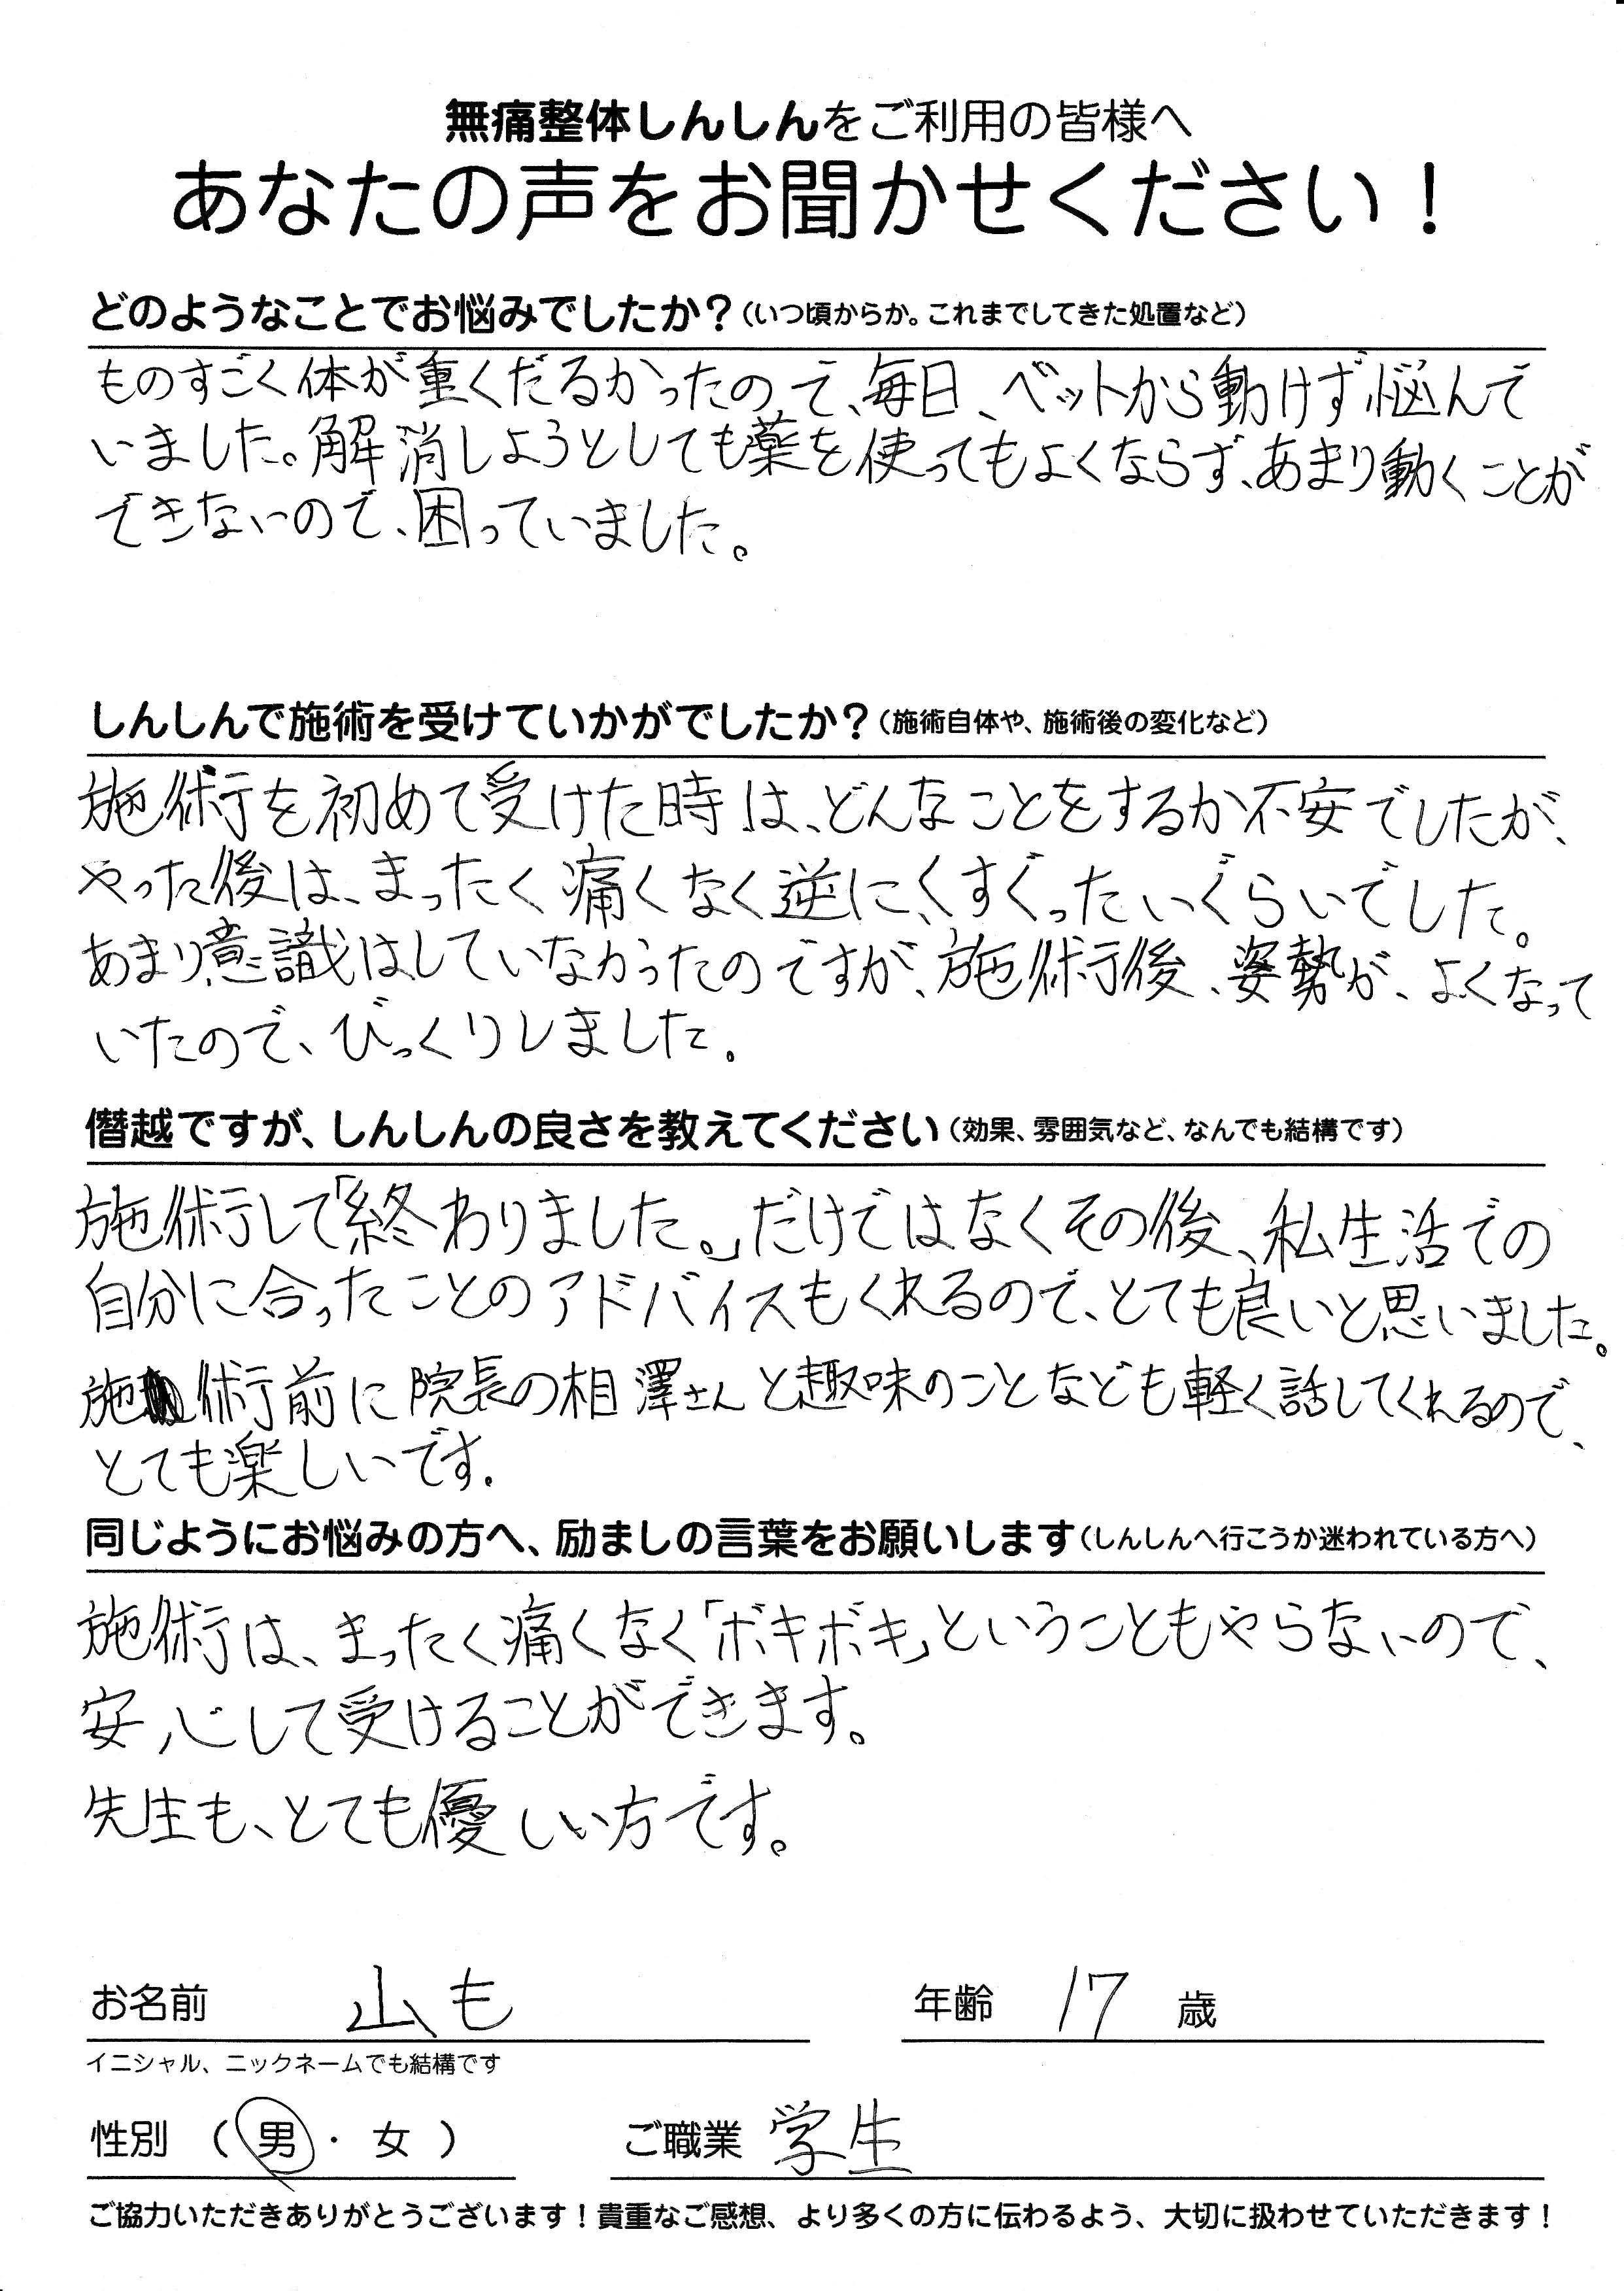 無痛整体しんしんをご利用の皆様へ
あなたの声をお聞かせください！
どのようなことでお悩みでしたか？（いつ頃からか。これまでしてきた処置など）
ものすごく体が重くだるかったので、毎日、ベットから動けず悩んで
いました。解消しようとしても薬を使ってもよくならず、あまり動くことが
できないので、困っていました。
しんしんで施術を受けていかがでしたか？（施術自体や、施術後の変化など）
施術を初めて受けた時は、どんなことをするか不安でしたが、
やった後は、まったく痛くなく逆に、くすぐったいぐらいでした。
あまり、意識はしていなかったのですが、施術後、姿勢が、よくなって
いたので、びっくりしました。
僭越ですが、しんしんの良さを教えてください（効果、雰囲気など、なんでも結構です）
施術して「終わりました。」だけではなくその後、私生活での
自分に合ったことのアドバイスもくれるので、とても良いと思いました。
施術前に院長の相澤さんと趣味のことなども軽く話してくれるので、
とても楽しいです。
同じようにお悩みの方へ、励ましの言葉をお願いします（しんしんへ行こうか迷われている方へ）
施術は、まったく痛くなく「ボキボキ」ということもやらないので、
安心して受けることができます。
先生も、とても優しい方です。
お名前 山も 年齢 17 歳
イニシャル、ニックネームでも結構です
性別 （ 男 ・ 女 ） ご職業 学生
ご協力いただきありがとうございます！貴重なご感想、より多くの方に伝わるよう、大切に扱わせていただきます！